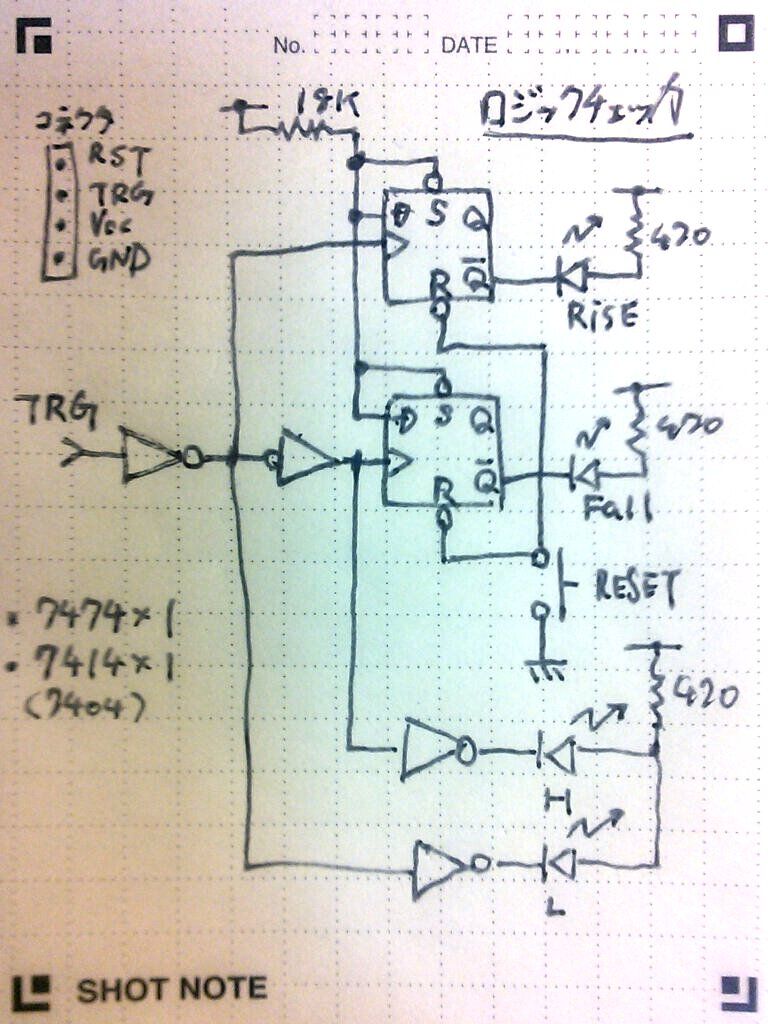 No. DATE
ロジックチェック
コネクタ
RST
TRG
Vcc
GND
18K
D S Q
R Q̅
470
RiSE
TRG
D S Q
R Q̅
470
Fall
RESET
• 7474×1
• 7414×1
(7404)
470
H
L
SHOT NOTE